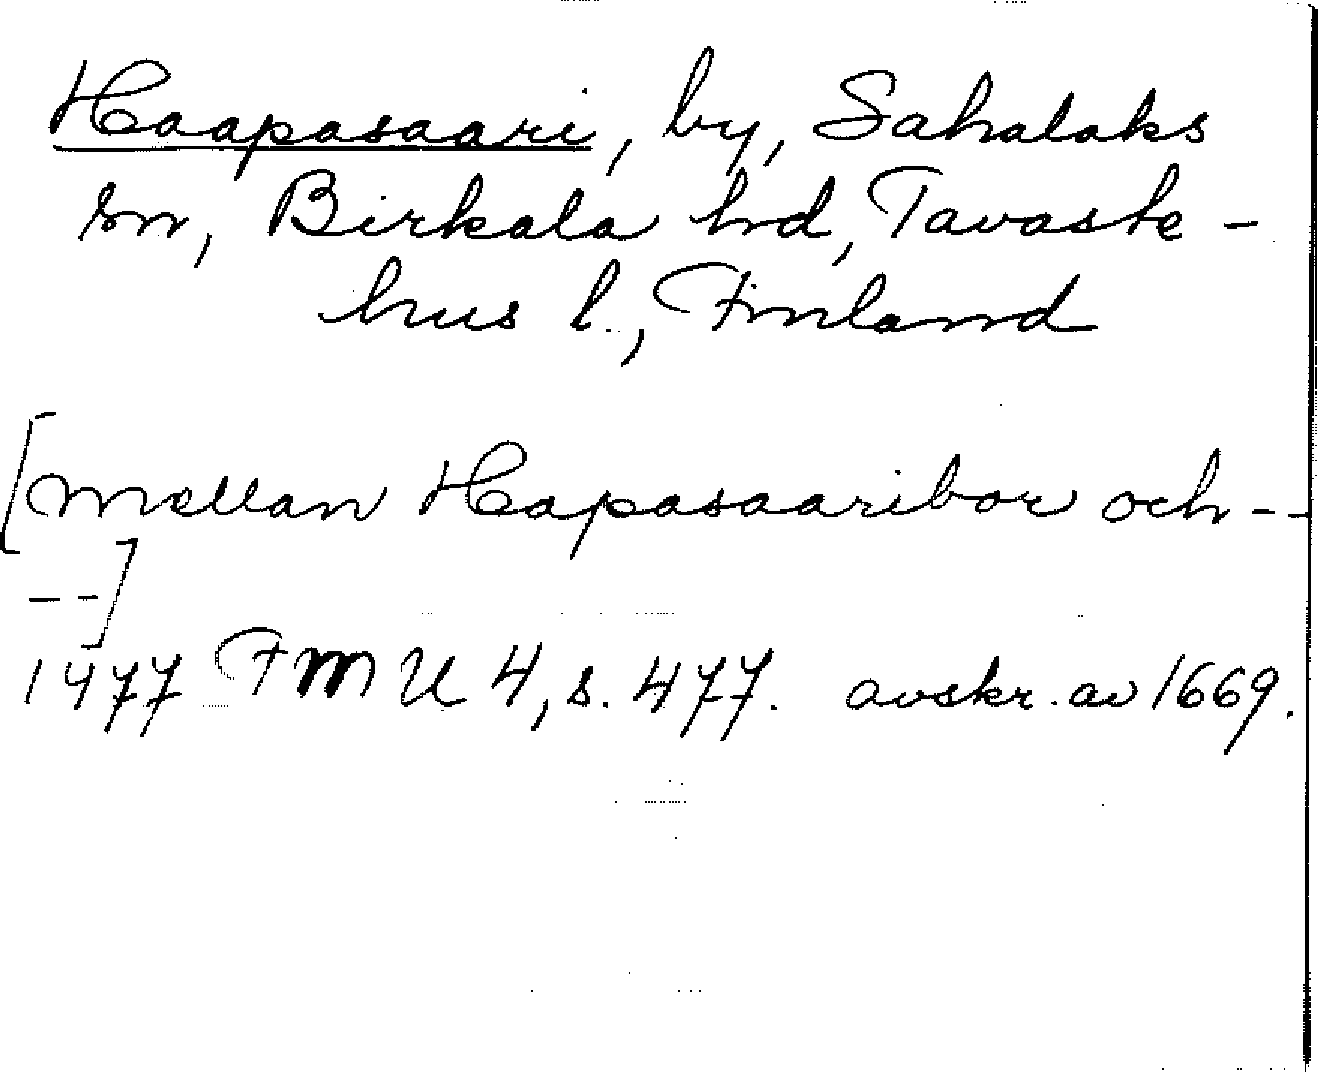 Haapasaari, by, Sahalaks
sn, Birkala hd, Tavaste-
hus l., Finland
[mellan Hapasaaribor och --
--]
1477 FMU 4, s. 477. avskr. av 1669.